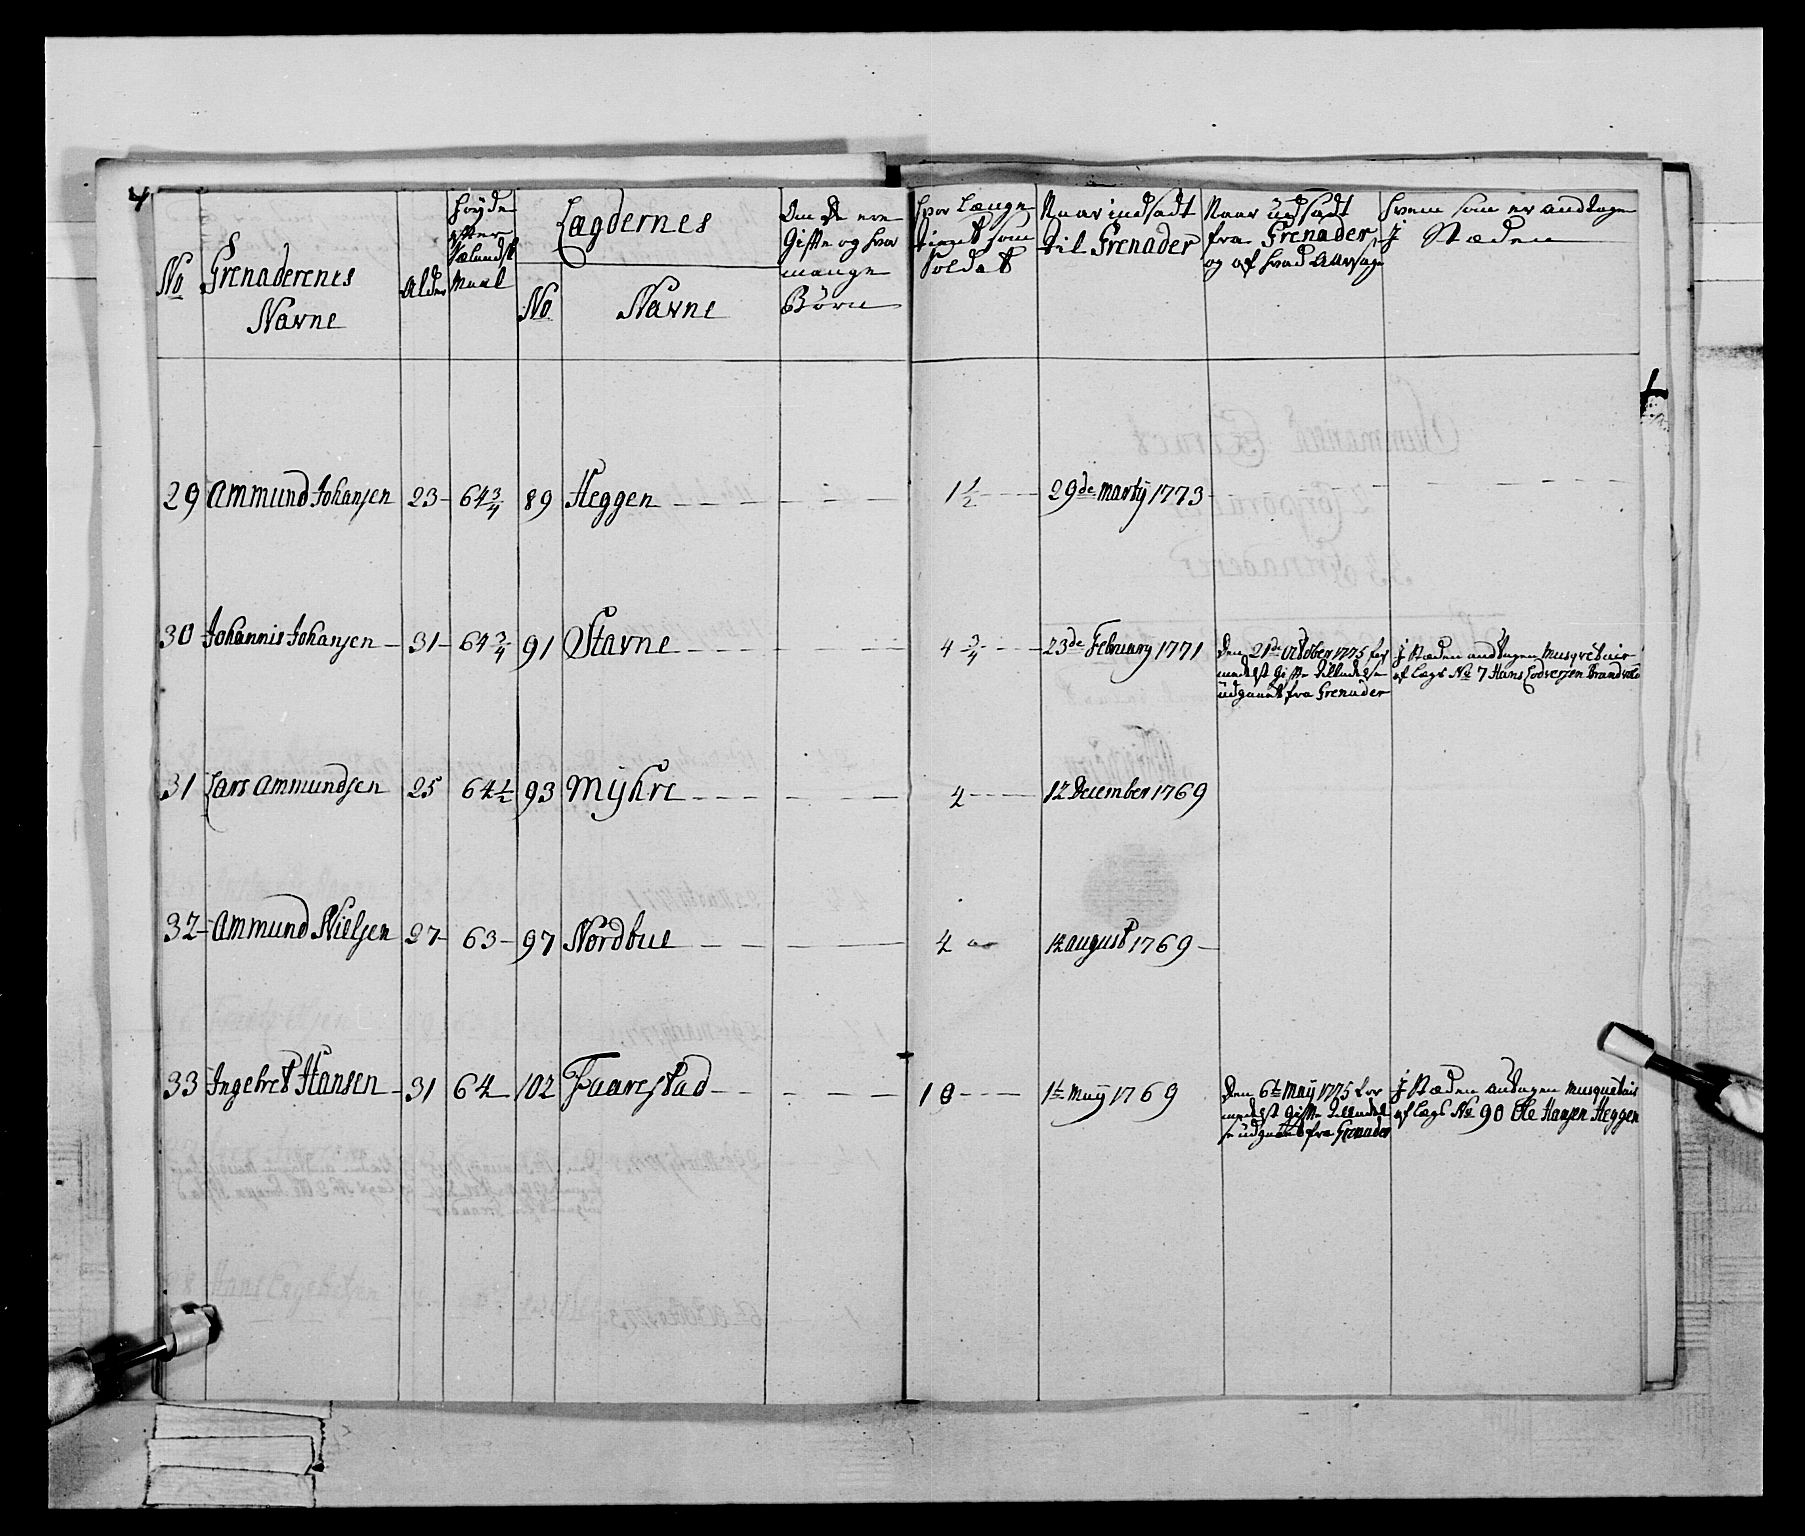 4
No
Grenaderenes
Navne
Alder
Høyde
efter
Siælundsk
Maal
Lægdernes
No
Navne
Om de ere
Gifte og hvor
mange
Børn
hvor Længe
tient som
Soldat
Naar indsadt
til Grenader
Naar udsadt
fra Grenader
og af hvad Aarsage
hvem som er andtagen
J Stæden
29 Ammund Johansen 23 - 64 3/4 89 Heggen - - - - - - 1 1/2 - - - 29de Martij 1773 - - - - - - -
30 Johannis Johansen - 31 - 64 3/4 91 Stavne - - - - - - 4 3/4 - - - 23de February 1771
Den 21de October 1775 for
medelst Gifte Tilladelse
udgaaet fra Grenader
J Stæden andtagen Musqvetair
af Lægd No 7 Hans Lodversen Brandvold
31 Lars Ammundsen 25 64 1/2 93 Myhre - - - - - - 4 - - - 12 December 1769
32 - Ammund Nielsen 27 - 63 - 97 Nordbue - - - - - 4 14 august 1769 -
33 Ingebret Hansen - 31 64 102 Faarestad - - - - - 10 - - - 1te Maij 1769
Den 6te Maij 1775 for
medelst Gifte Tilladel
se udgaaet fra Grenader
J Stæden andtagen Musquetair
af Lægd No 90 Ole Hansen Heggen